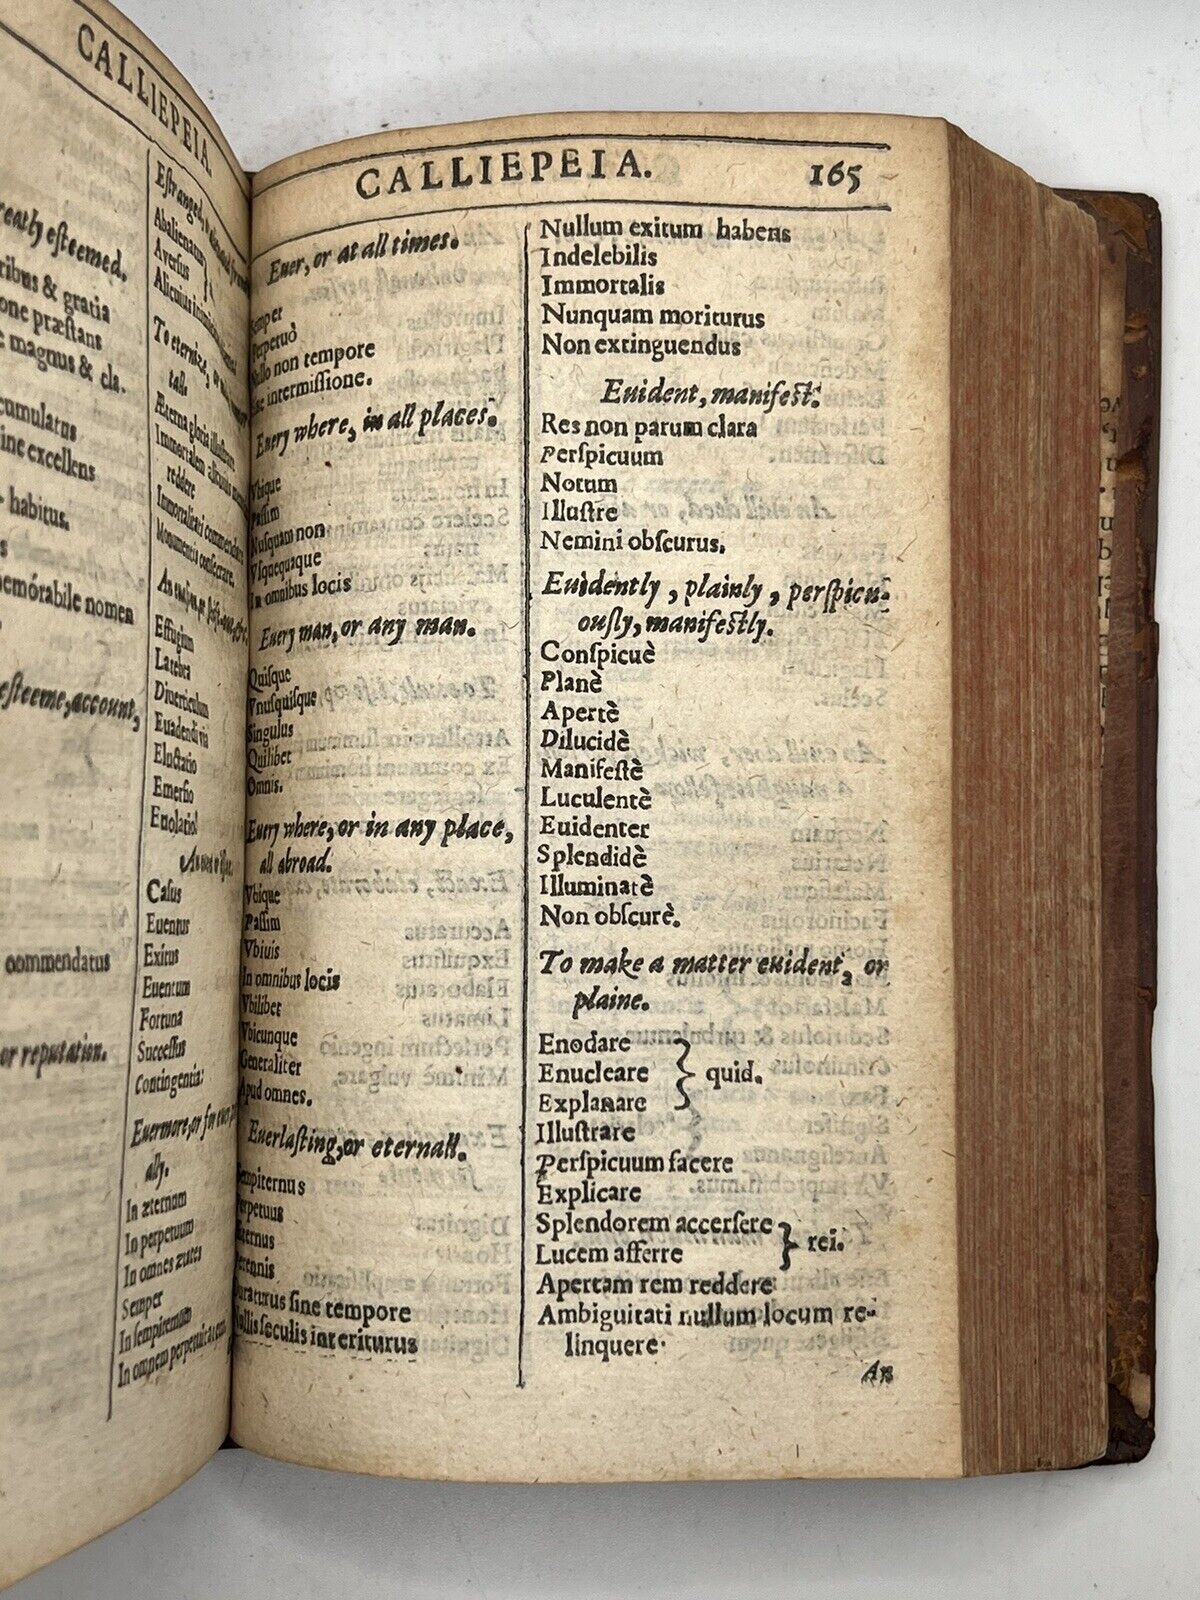 CALLIEPEIA.
reatly esteemed.
ribus & gratia
one præstans
magnus & cla.
cumulatus
ine excellens
habitus.
memórabile nomen
esteeme, account,
commendatus
or reputation.
Estranged,
Abalienatum
Aversus
Alicuius
To eternize, or
Æterna gloria illustrare
Immortalem
reddere
Immortalitati commendare
Monumentis consecrare.
Effugium
Latebra
Diverticulum
Euadendi via
Eluctatio
Emersio
Euolatio
Casus
Euentus
Exitus
Euentum
Fortuna
Successus
Contingentia:
Euermore, or for euer
ally.
In æternum
In perpetuum
In omnes
Semper
In sempiternum
In omnem
CALLIEPEIA. 165
Euer, or at all times.
Semper
Perpetuò
Nullo non tempore
intermiſſione.
Euery where, in all places.
Vbique
Paſſim
Nuſquam non
Vſquequaque
In omnibus locis
Euery man, or any man.
Quiſque
Vnuſquiſque
Singulus
Quilibet
Omnis.
Euery where, or in any place,
all abroad.
Vbique
Paſſim
Vbiuis
In omnibus locis
Vbilibet
Vbicunque
Generaliter
Apud omnes.
Euerlaſting, or eternall.
Sempiternus
Perpetuus
Æternus
Perennis
Duraturus ſine tempore
Nullis ſeculis interiturus
Nullum exitum habens
Indelebilis
Immortalis
Nunquam moriturus
Non extinguendus
Euident, manifeſt.
Res non parum clara
Perſpicuum
Notum
Illuſtre
Nemini obſcurus.
Euidently, plainly, perſpicu-
ouſly, manifeſtly.
Conſpicuè
Planè
Apertè
Dilucidè
Manifeſtè
Luculentè
Euidenter
Splendidè
Illuminatè
Non obſcurè.
To make a matter euident, or
plaine.
Enodare
Enucleare } quid.
Explanare
Illuſtrare
Perſpicuum facere
Explicare
Splendorem accerſere
Lucem afferre } rei.
Apertam rem reddere
Ambiguitati nullum locum re-
linquere.
An